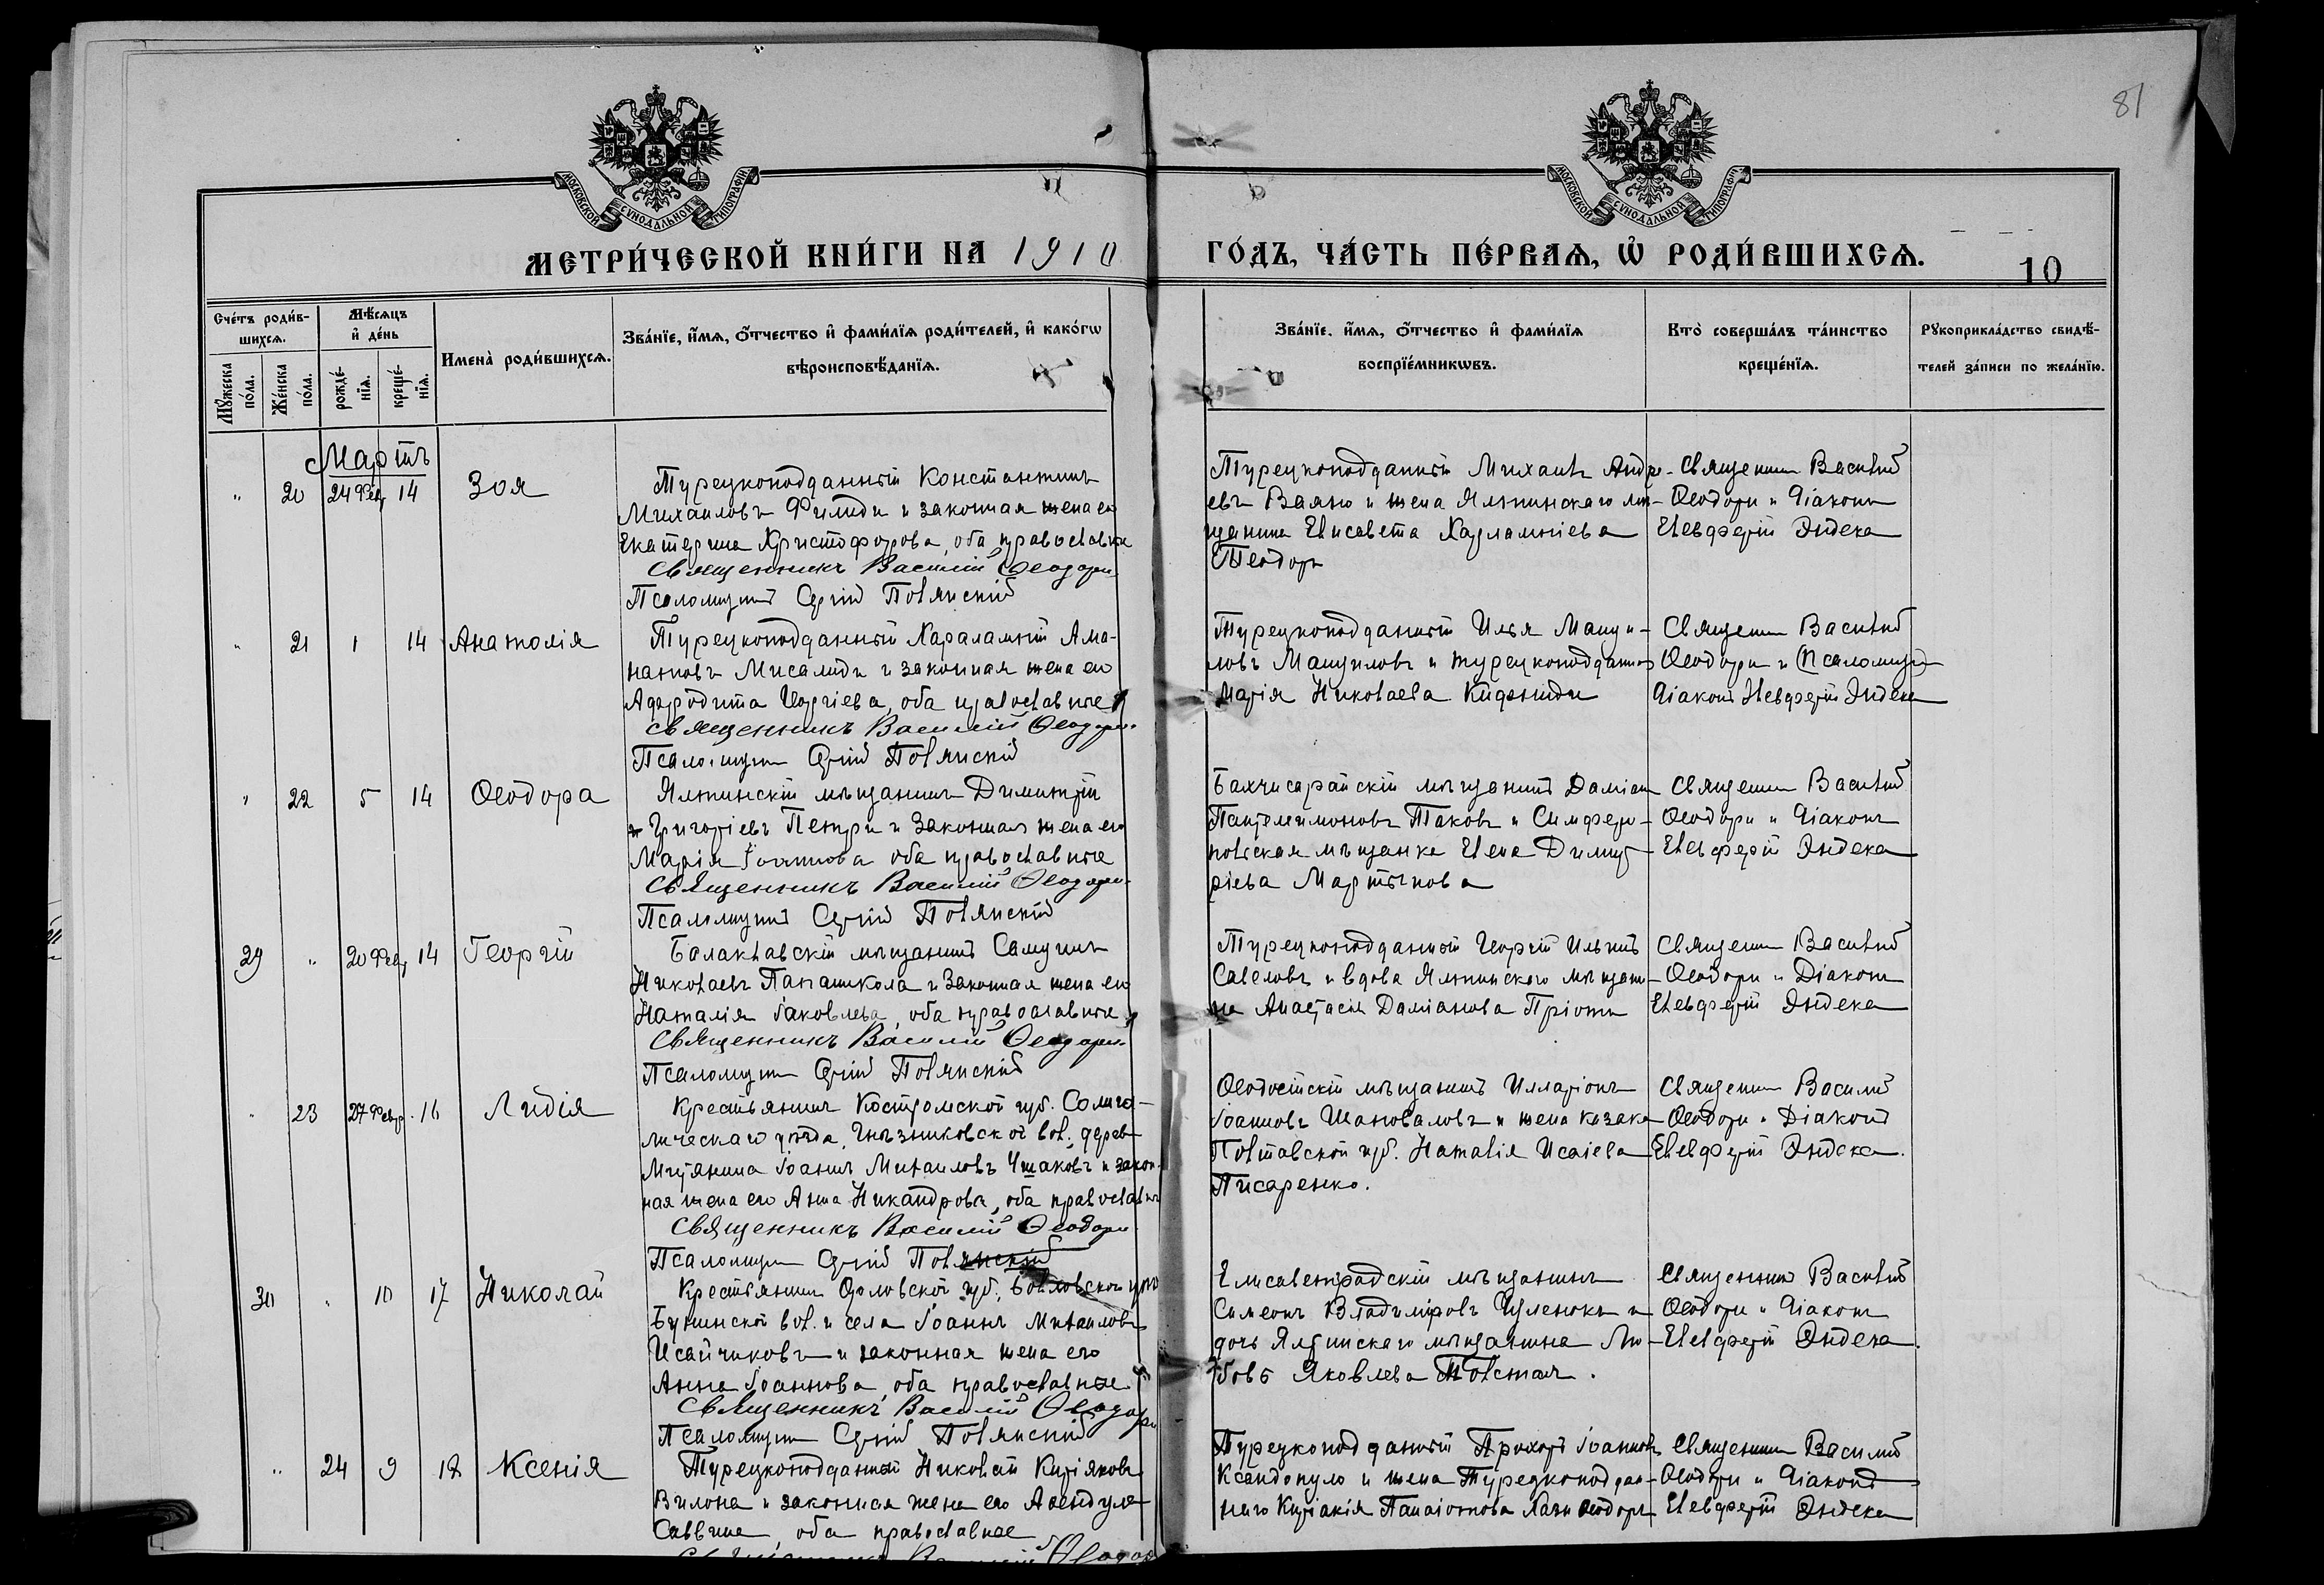 81
МОСКОВСКОЙ СѴНОДАЛЬНОЙ ТИПОГРАФІИ
МОСКОВСКОЙ СѴНОДАЛЬНОЙ ТИПОГРАФІИ
МЕТРИ́ЧЕСКОЙ КНИ́ГИ НА 1910 ГО́ДЪ, ЧА́СТЬ ПЕ́РВАѦ, Ѡ҆ РОДИ́ВШИХСѦ.
10
Сче́тъ роди́в-
шихсѧ.
Мꙋ́жеска по́ла.
Же́нска по́ла.
Мѣ́сѧцъ и҆ де́нь
рожде́-нїѧ.
креще́-нїѧ.
Имена̀ роди́вшихсѧ.
Зва́нїе, и҆́мѧ, ѻ҆́тчество и҆ фами́лїѧ роди́телей, и҆ како́гѡ
вѣроисповѣ́данїѧ.
Зва́нїе. и҆́мѧ, ѻ҆́тчество и҆ фами́лїѧ
воспрїе́мникѡвъ.
Кто̀ соверша́лъ та́инство
креще́нїѧ.
Рꙋкоприкла́дство свидѣ́-
телей за́писи по жела́нїю.
Мартъ
" 20 24 Фев 14 Зоя
Турецкоподданный Константинъ
Михаиловъ Филиди и законная жена его
Екатерина Христофорова, оба православные
Священникъ Василій Ѳеодори
Псаломщикъ Сергій Полянскій
Турецкоподданный Михаилъ Андре-
евъ Ваяно и жена Ялтинскаго мѣ-
щанина Елисавета Харлампіева
Теодори
Священникъ Василій
Ѳеодори и Діаконъ
Елевферій Эндека
" 21 1 14 Анатолія
Турецкоподданный Харалампій Ама-
натовъ Мисалиди и законная жена его
Афродита Георгіева, оба православные
Священникъ Василій Ѳеодори
Псаломщикъ Сергій Полянскій
Турецкоподданный Илья Мануи-
ловъ Мануиловъ и турецкоподданная
Марія Николаева
Священникъ Василій
Ѳеодори и (Псаломщ)
Діаконъ Елевферій Эндека
" 22 5 14 Ѳеодора
Ялтинскій мѣщанинъ Димитрій
Григоріевъ Петри и законная жена его
Марія Іоаннова оба православные
Священникъ Василій Ѳеодори
Псаломщикъ Сергій Полянскій
Бахчисарайскій мѣщанинъ Даміанъ
Пантелеимоновъ Таковъ и Симферо-
польская мѣщанка Елена Димит-
ріева Мартынова
Священникъ Василій
Ѳеодори и Діаконъ
Елевферій Эндека
29 " 20 Фев 14 Георгій
Балаклавскій мѣщанинъ Самуилъ
Николаевъ Папаникола и законная жена его
Наталія Іаковлева, оба православные
Священникъ Василій Ѳеодори
Псаломщикъ Сергій Полянскій
Турецкоподданный Георгій Ильинъ
Савеловъ и вдова Ялтинскаго мѣщани-
на Анастасія Даміанова
Священникъ Василій
Ѳеодори и Діаконъ
Елевферій Эндека
" 23 27 Февр. 16 Лидія
Крестьянинъ Костромской губ. Солига-
лическаго уѣзда, Гнѣздниковской вол. дерев
Митянина Іоаннъ Михаиловъ Ушаковъ и закон-
ная жена его Анна Никандрова, оба православн
Священникъ Василій Ѳеодори
Псаломщикъ Сергій Полянскій
Ѳеодосійскій мѣщанинъ Илларіонъ
Іоанновъ Шаповаловъ и жена казака
Полтавской губ. Наталія Исаіева
Писаренко.
Священникъ Василій
Ѳеодори и Діаконъ
Елевферій Эндека.
30 " 10 17 Николай
Крестьянинъ Орловской губ. Болховскаго у
Бунинской вол. и села Іоаннъ Михаиловъ
Исайчиковъ и законная жена его
Анна Іоаннова, оба православные
Священникъ Василій Ѳеодори
Псаломщикъ Сергій Полянскій
Елисаветградскій мѣщанинъ
Симеонъ Владиміровъ Цуленокъ и
дочь Ялтинскаго мѣщанина Лю-
бовь Яковлева Толстая.
Священникъ Василій
Ѳеодори и Діаконъ
Елевферій Эндека.
" 24 9 18 Ксенія
Турецкоподданный Николай Киріяковъ
Вилона и законная жена его
Саввина, оба православные
Священникъ Василій Ѳеодори
Турецкоподданный Прохоръ Іоанновъ
Ксандопуло и жена Турецкоподдан-
наго Киріакія Панаіотова
Священникъ Василій
Ѳеодори и Діаконъ
Елевферій Эндека